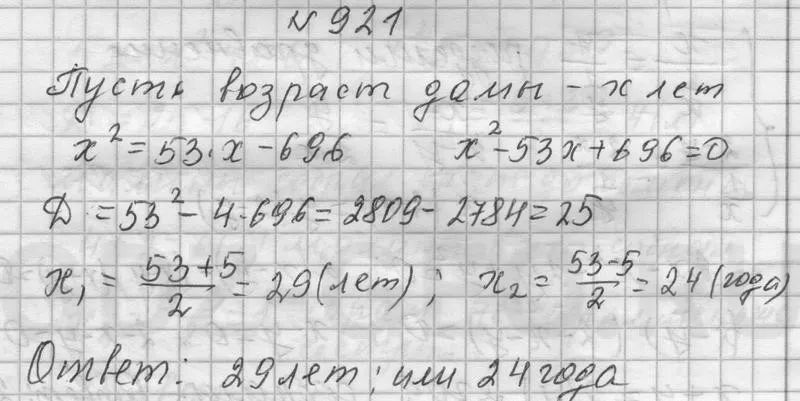 №921
Пусть возраст дамы - x лет
x² = 53·x - 696 x² - 53x + 696 = 0
Д = 53² - 4·696 = 2809 - 2784 = 25
x₁ = (53+5)/2 = 29 (лет); x₂ = (53-5)/2 = 24 (года)
Ответ: 29 лет; или 24 года